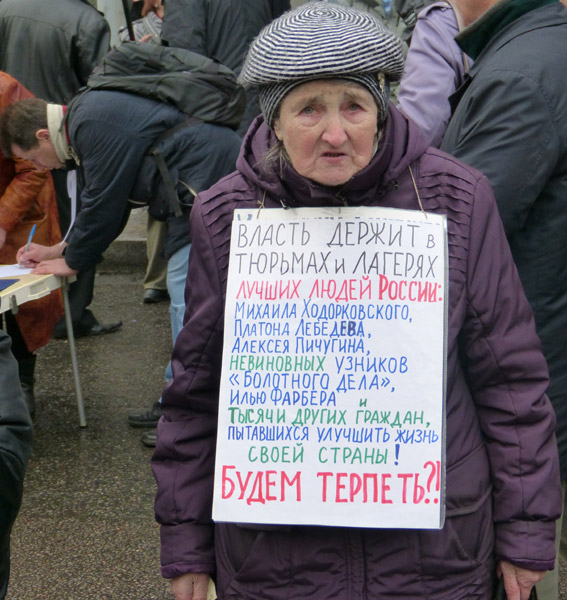 ВЛАСТЬ ДЕРЖИТ в
ТЮРЬМАХ и ЛАГЕРЯХ
ЛУЧШИХ ЛЮДЕЙ РОССИИ:
МИХАИЛА ХОДОРКОВСКОГО,
ПЛАТОНА ЛЕБЕДЕВА,
АЛЕКСЕЯ ПИЧУГИНА,
НЕВИНОВНЫХ УЗНИКОВ
«БОЛОТНОГО ДЕЛА»,
ИЛЬЮ ФАРБЕРА И
ТЫСЯЧИ ДРУГИХ ГРАЖДАН,
ПЫТАВШИХСЯ УЛУЧШИТЬ ЖИЗНЬ
СВОЕЙ СТРАНЫ!
БУДЕМ ТЕРПЕТЬ?!